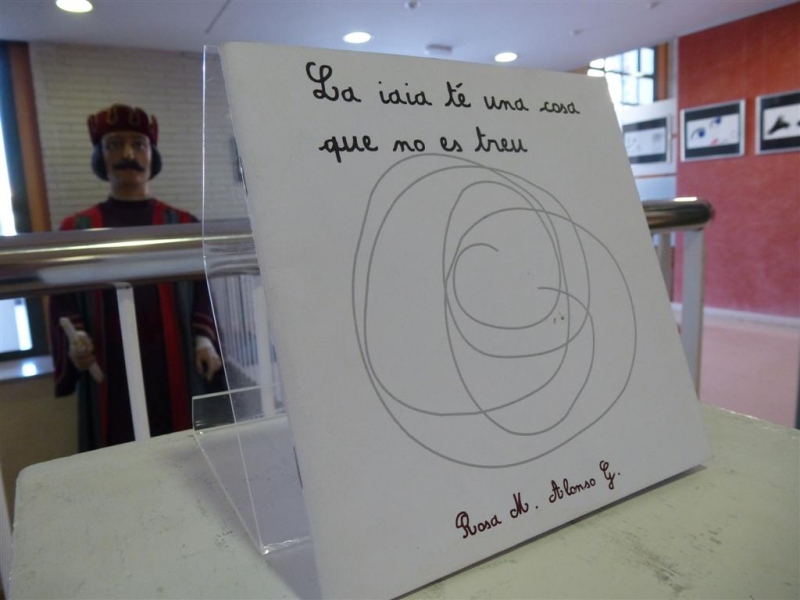 La iaia té una cosa
que no es treu
Rosa M. Alonso G.